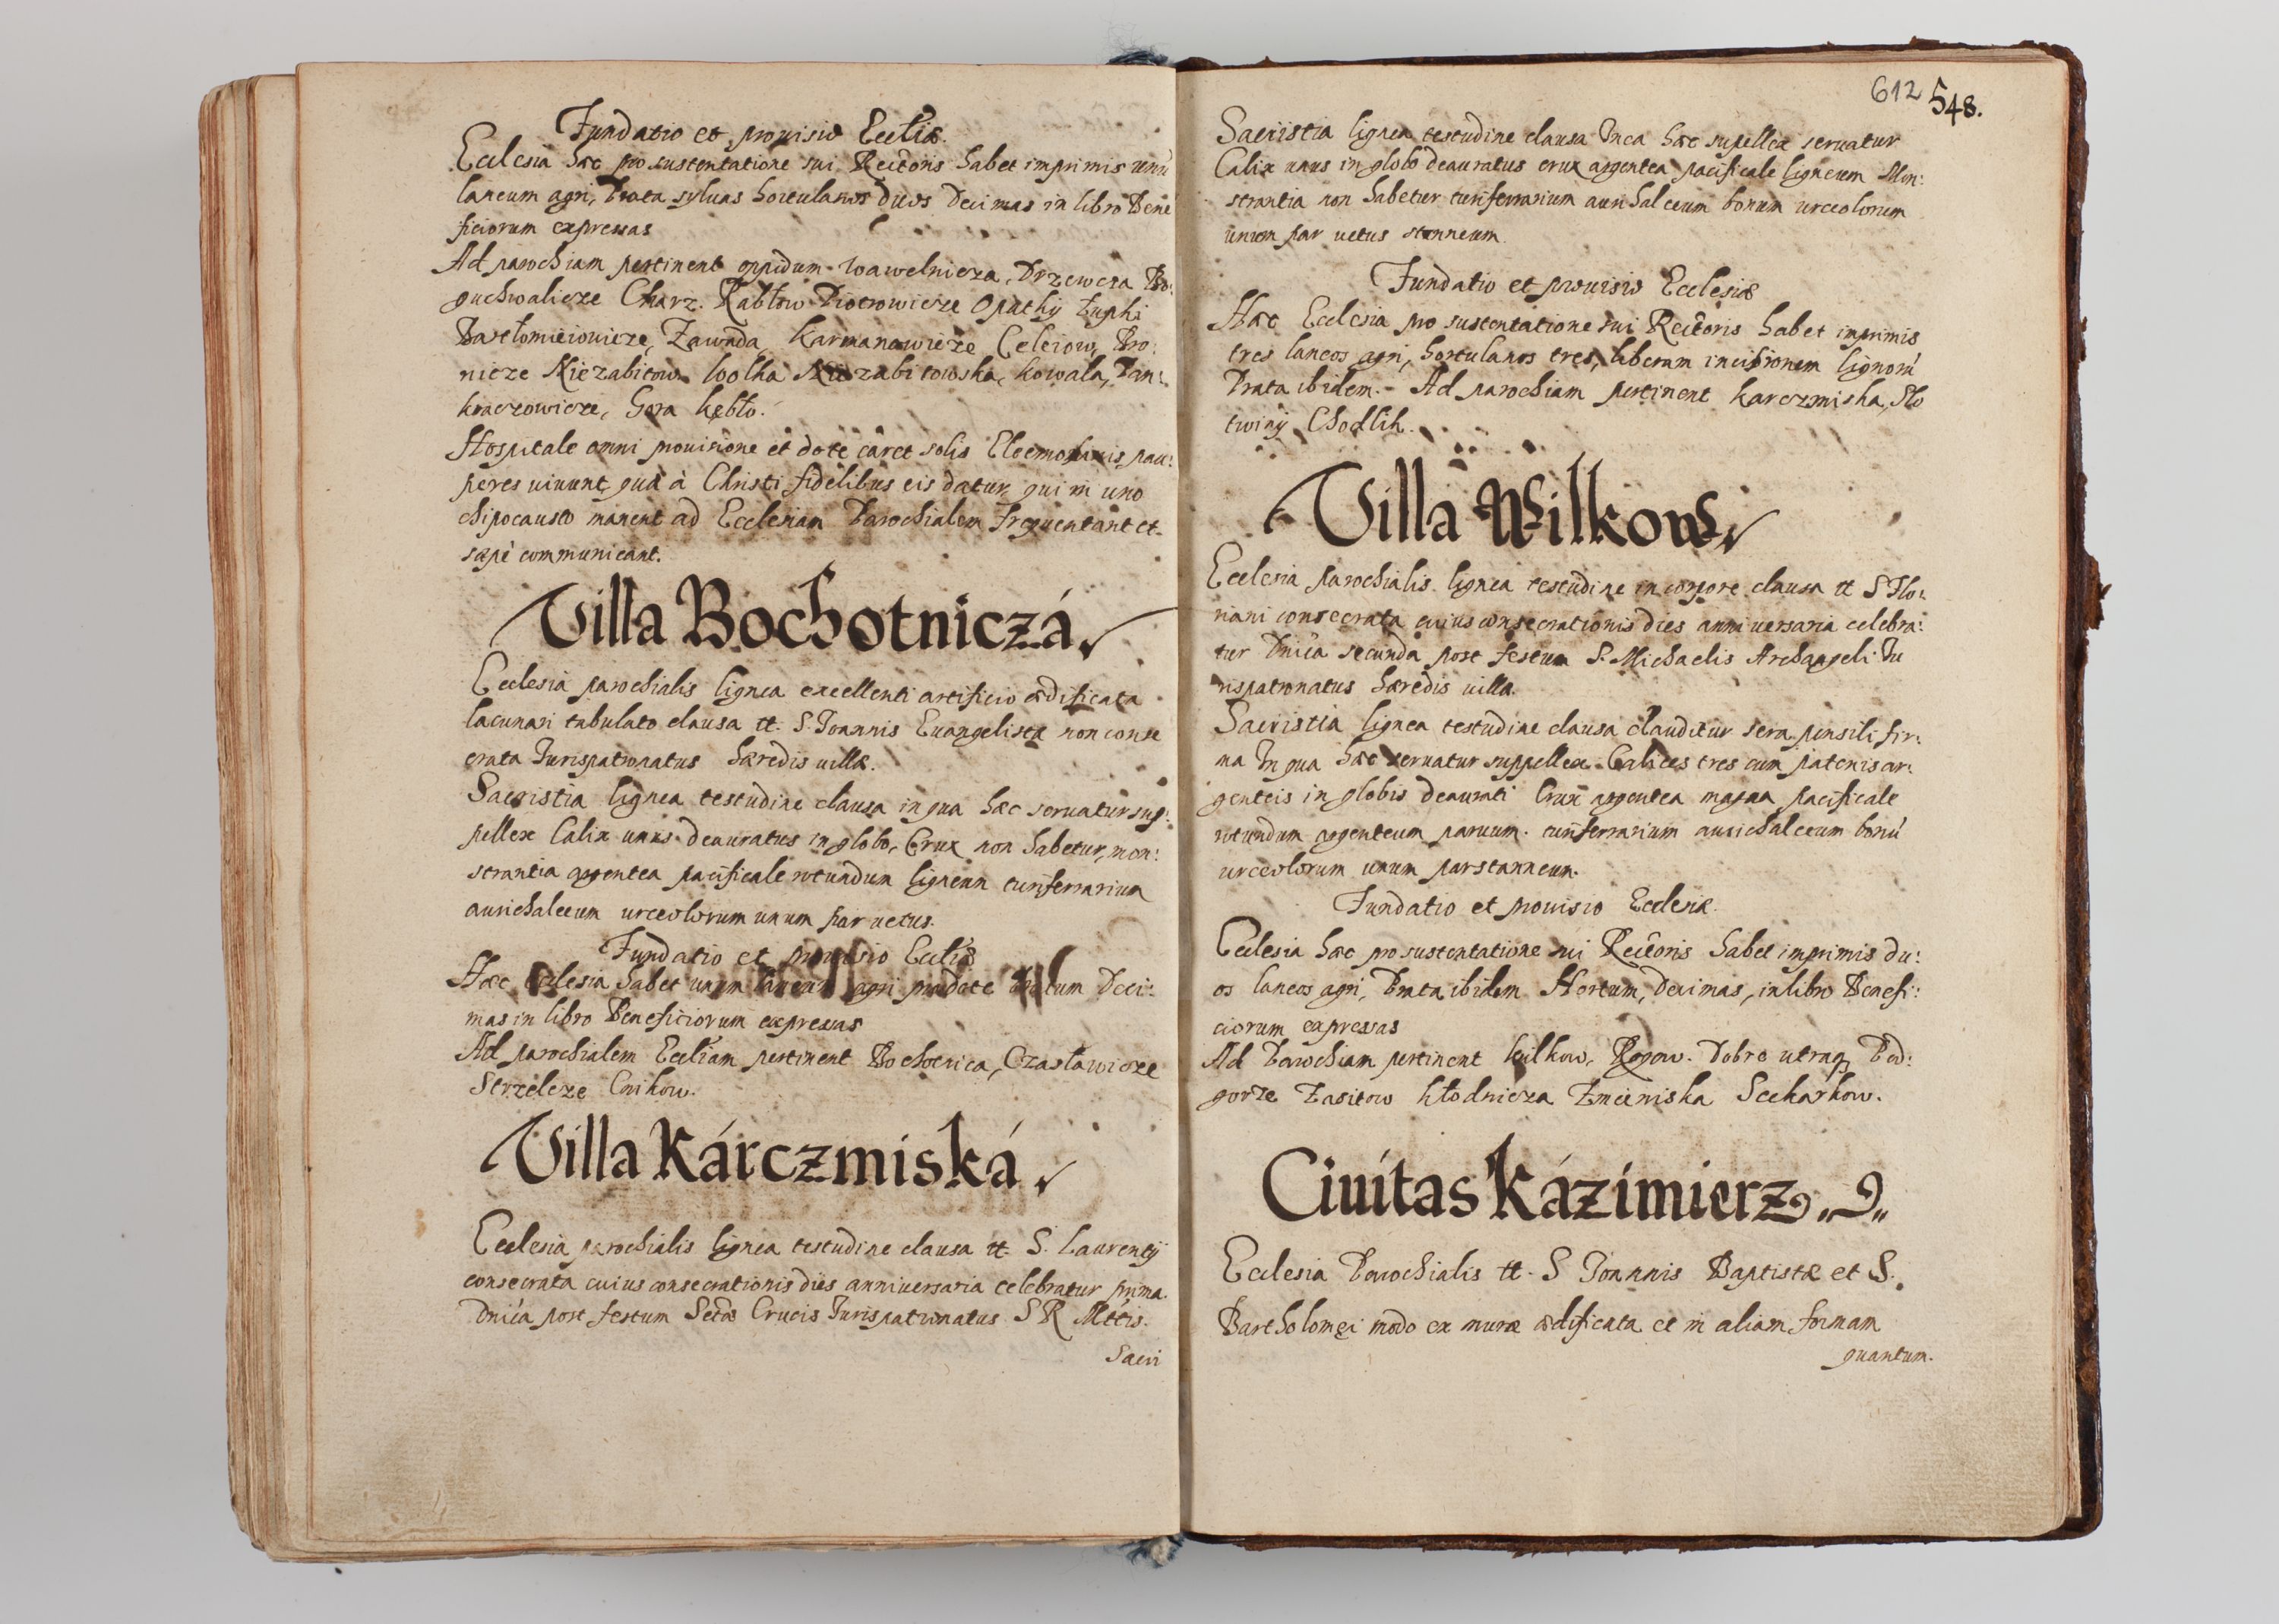 Fundatio et prouisio Eccliæ.
Ecclesia hæc pro sustentatione sui Rectoris habet imprimis unũ
laneum agri, Prata syluas hortulanos duos Decimas in libro Bene
ficiorum expressas
Ad parochiam pertinent oppidum Wawelnicza, Drzewcza Bo:
guchwalicze Charz. Rabłow Piotrowicze Opatky Łupki
Bartlomieiowicze, Zawada, Karmanowicze Celeiow, Bro:
nicze Niezabitow Wolka Niezabitowska, Kowala, Pan:
kraczowicze, Gora Kębło.
Hospitale omni prouisione et dote caret solis Eleemosinis pau:
peres uiuunt quæ à Christi fidelibus eis datur qui in uno
chipocausto manent ad Ecclesiam Parochialem frequentant et
sæpè communicant.
Villa Bochotniczá
Ecclesia parochialis lignea excellenti artificio ædificata
lacunari tabulato clausa tt. S. Joannis Euangelistæ non conse
crata Jurispatronatus hæredis uillæ.
Sacristia lignea testudine clausa in qua hæc seruatur sup:
pellex Calix unus deauratus in globo, Crux non habetur, mon:
strantia argentea pacificale rotundum ligneum turiferrarium
aurichalceum urceolorum unum par uetus.
Fundatio et prouisio Eccliæ
Hæc Ecclesia habet unum laneum agri prædote Pratum Deci:
mas in libro Beneficiorum expressas
Ad parochialem Eccliam pertinent Bochotnica, Czasławicze
Strzelcze Cnikow.
Villa Kárczmiská
Ecclesia parochialis lignea testudine clausa tt. S. Laurentij
consecrata cuius consecrationis diẽs anniuersaria celebratur prima
Dnica post festum Sctæ Crucis Jurispatronatus S R Mttis.
Sacri
612 548.
Sacristia lignea testudine clausa In ea hæc supellex seruatur
Calix unus in globo deauratus crux argentea pacificale ligneum Mon:
strantia non habetur turiferrarium aurichalceum bonum urceolorum
unum par uetus stanneum.
Fundatio et prouisio Ecclesiæ
Hæc Ecclesia pro sustentatione sui Rectoris habet inprimis
tres laneos agri, hortulanos tres, liberam incisionem lignorũ
Prata ibidem. Ad parochiam pertinent Karczmiska, Slo
twiny Chodlik.
Villa Wilkow
Ecclesia parochialis lignea testudine in corpore clausa tt S Flo:
riani consecrata cuius consecrationis dies anniuersaria celebra:
tur Dnica secunda post festum S. Michaelis Archangeli Ju
rispatronatus hæredis uillæ.
Sacristia lignea testudine clausa clauditur sera pensili fir:
ma In qua hæc seruatur suppellex Calices tres cum patenis ar:
genteis in globis deaurati Crux argentea magna pacificale
rotundum argenteum paruum. turiferrarium aurichalceum bonũ
urceolorum unum par stanneum.
Fundatio et prouisio Ecclesiæ.
Ecclesia hæc pro sustentatione sui Rectoris habet imprimis du:
os laneos agri, Prata ibidem Hortum, decimas, in libro Benefi:
ciorum expressas
Ad Parochiam pertinent Wilkow, Rogow. Dobre utraq; Pod:
gorze Zasitow Kłodnicza Zmieiniska Szczkarkow.
Ciuitas Kázimierz
Ecclesia Parochialis tt. S Joannis Baptistæ et S.
Bartholomęi modo ex muro ædificata et in aliam formam
quantum.